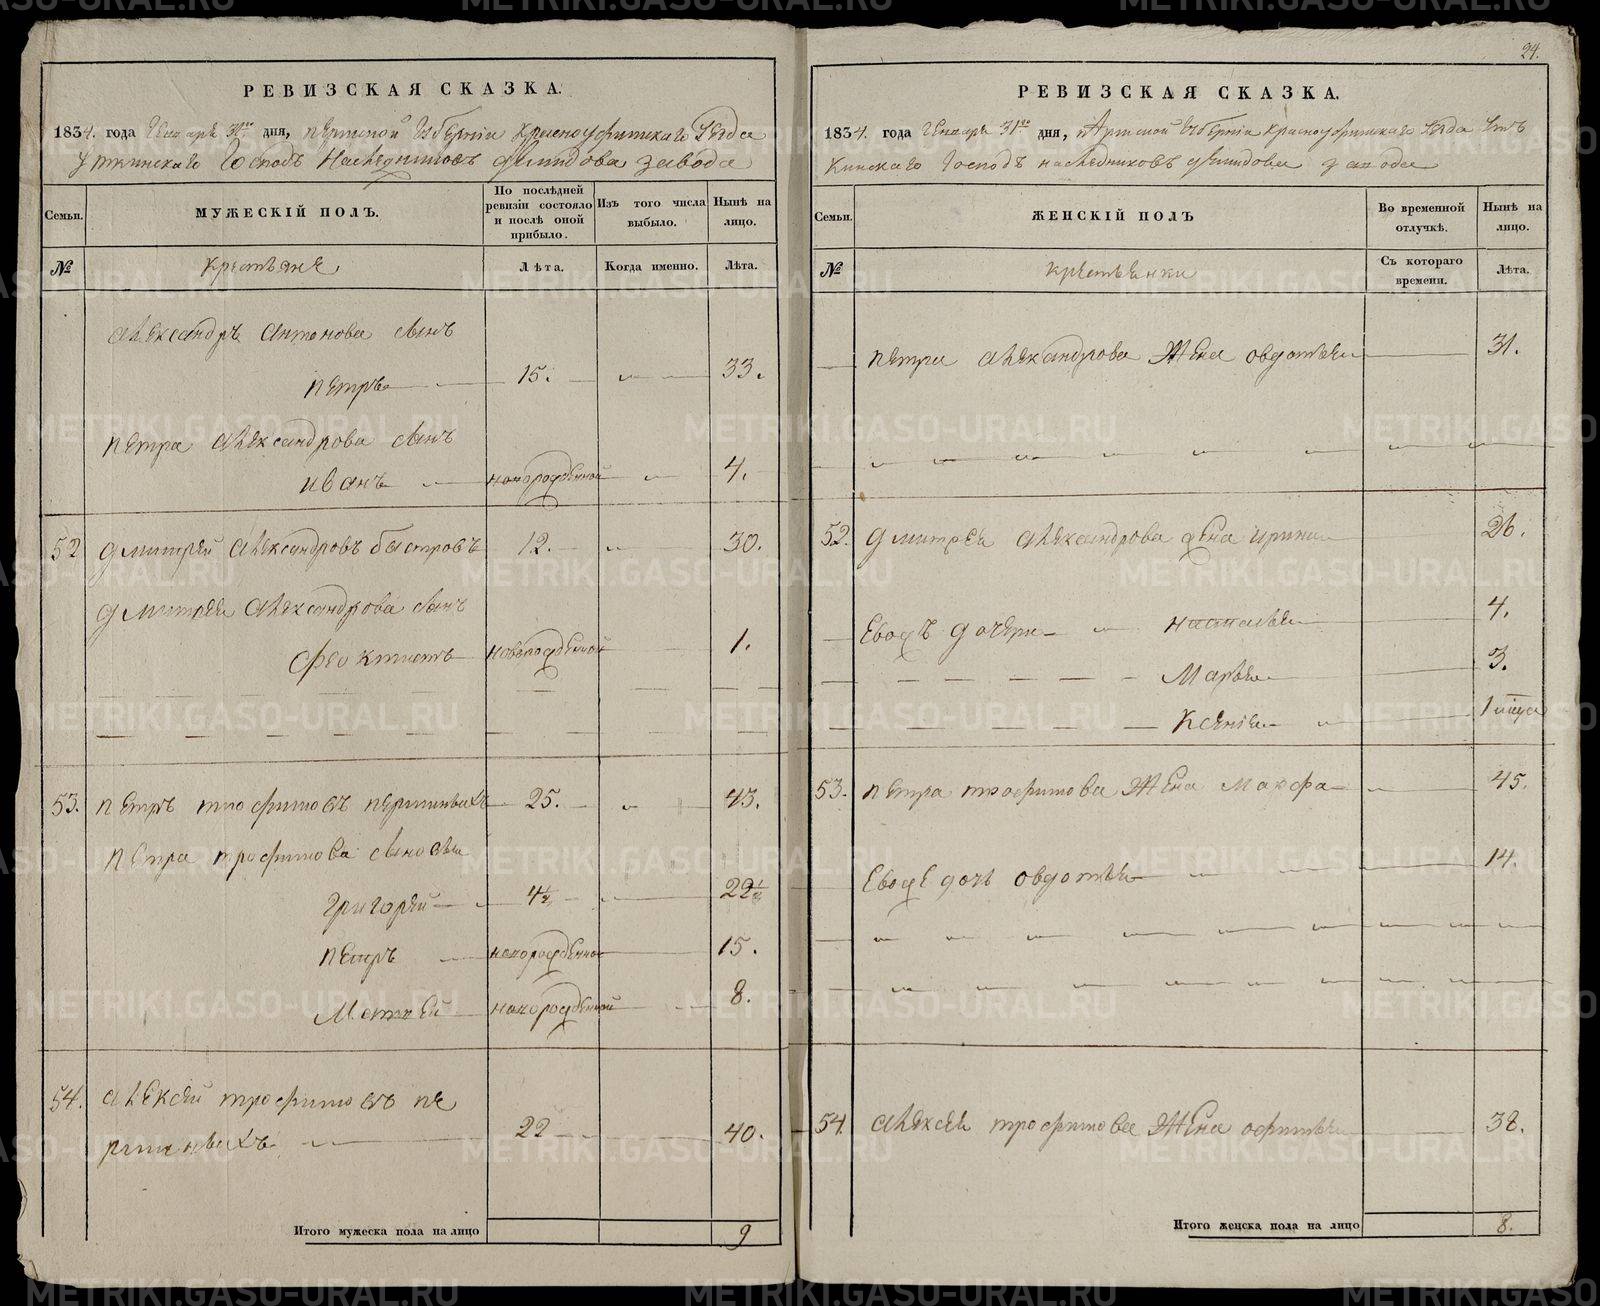 24.
РЕВИЗСКАЯ СКАЗКА.
1834. года Генваря 31го дня, пермской губерніи Красноуфимскаго уезда
Уткинскаго Господъ Наследниковъ Демидова завода
Семьи.
МУЖЕСКІЙ ПОЛЪ.
По послѣдней ревизіи состояло и послѣ оной прибыло.
Изъ того числа выбыло.
Нынѣ на лицо.
№
крестьяне
Лѣта.
Когда именно.
Лѣта.
александръ антонова сынъ
петръ 15. 33.
петра александрова сынъ
иванъ новорожденной 4.
52 дмитрей александровъ быстровъ 12. 30.
дмитрея александрова сынъ
феоктистъ новорожденной 1.
53. петръ трофимовъ 25. 43.
петра трофимова сыновья
григорей 4½ 22½
петръ новорожденной 15.
Матвей новорожденной 8.
54. алексей трофимовъ пе
22 40.
Итого мужеска пола на лицо 9
РЕВИЗСКАЯ СКАЗКА.
1834. года Генваря 31го дня, пермской губерніи красноуфимскаго уезда Ут
кинскаго Господъ наследниковъ демидова завода
Семьи.
ЖЕНСКІЙ ПОЛЪ
Во временной отлучкѣ.
Нынѣ на лицо.
№
крестьянки
Съ котораго времени.
Лѣта.
петра александрова Жена овдотья 31.
52. дмитрея александрова жена ирина 26.
Евожъ дочери наталья 4.
Марья 3.
Ксенія 1
53. петра трофимова Жена Макфа 45.
Евоже дочь овдотья 14.
54. алексея трофимова Жена офимья 38.
Итого женска пола на лицо 8.
METRIKI.GASO-URAL.RU